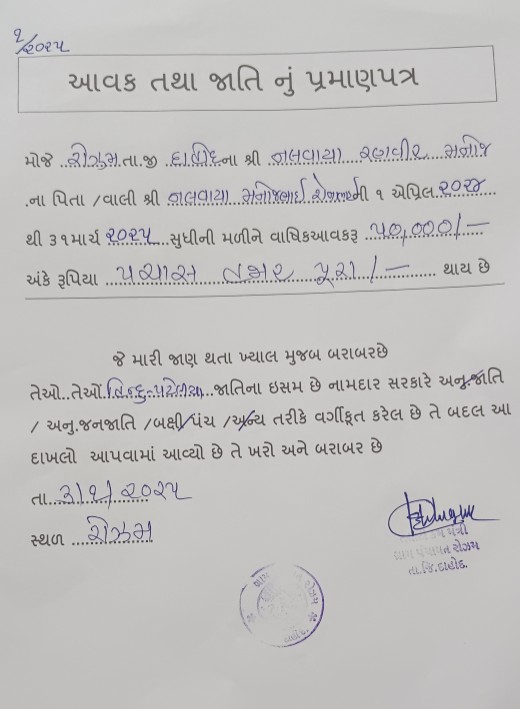 ૧/૨૦૨૫
આવક તથા જાતિ નું પ્રમાણપત્ર
મોજે .રોઝમ.તા.જી દાહોદના શ્રી નલવાયા રણવીર મનોજ
.ના પિતા /વાલી શ્રી નલવાયા મનોજભાઈ ની ૧ એપ્રિલ.૨૦૨૪
થી ૩૧માર્ચ ૨૦૨૫...સુધીની મળીને વાષિકઆવકરૂ ૫૦,૦૦૦/-
અંકે રૂપિયા પચાસ હજાર પૂરા/- થાય છે
જે મારી જાણ થતા ખ્યાલ મુજબ બરાબરછે
તેઓ..તેઓ.હિન્દુ-પટેલીયા..જાતિના ઇસમ છે નામદાર સરકારે અનુ.જાતિ
/ અનુ.જનજાતિ /બક્ષી પંચ /અન્ય તરીકે વર્ગીકૃત કરેલ છે તે બદલ આ
દાખલો આપવામાં આવ્યો છે તે ખરો અને બરાબર છે
તા...૩/૧/૨૦૨૫
સ્થળ ..રોઝમ
મંત્રી
ગ્રામ પંચાયત રોઝમ
તા.જિ.દાહોદ.